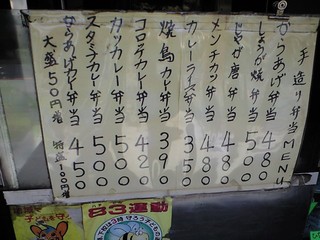 手造り弁当MENU
からあげ弁当 480
しょうが焼弁当 500
じゃが唐弁当 480
メンチカツ弁当 480
カレーライス弁当 350
焼鳥カレー弁当 390
コロッケカレー弁当 420
カツカレー弁当 500
スタミナカレー弁当 500
からあげカレー弁当 450
大盛50円増 特盛100円増
子どもを守
83運動